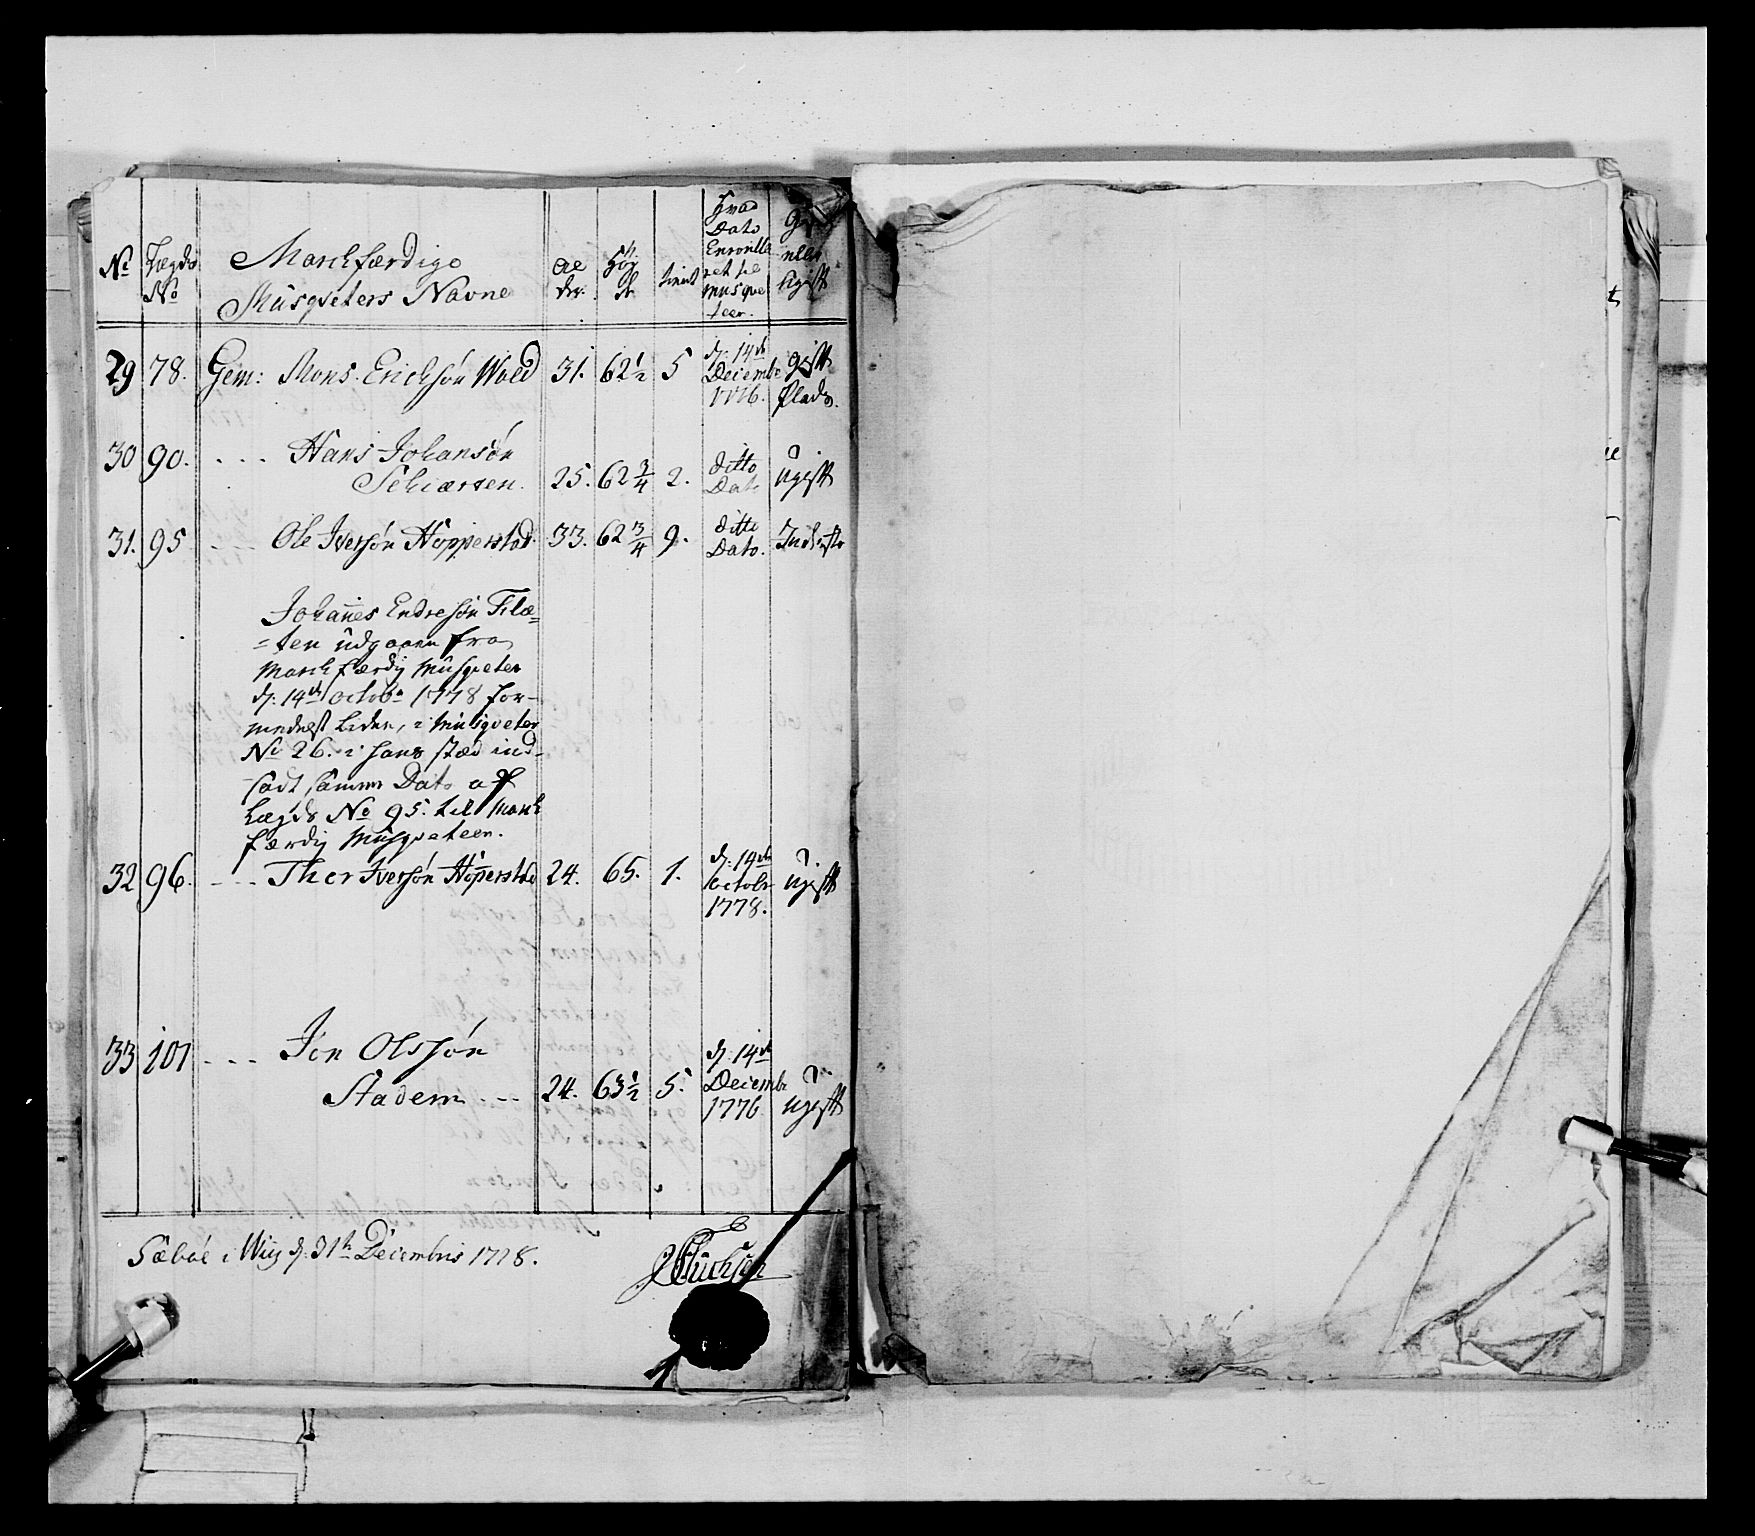 No Lægds No Marchfærdige Musqveters Navne Al der. Høy de tient Hvad Dato Enroulle ret til Musqve teer. Gift eller Ugift
29 78. Gem: Mons Erichsøn Wold 31. 62½ 5 d: 14de Decembr 1776. gift Plads.
30 90. - - - Hans Johansøn
Schiærsen. 25. 62¾ 2. ditto Dato Ugift
31. 95 - - - Ole Iversøn Hopperstad. 33. 62¾ 9. ditto Dato. Inderste
Johannes Endresøn Filæ=
=ten udgaaen fra
March færdig Musqveter
d: 14de octobr 1778 for-
medelst Liden, i Musqveter
No 26. i hans stæd ind-
sadt samme Dato af
Lægds No 95. til March
færdig Musqveteer.
32 96. - - - Thor Iversøn Hoperstad 24. 65. 1. d: 14de octobr 1778. Ugift
33 101 - - - Jon Olssøn
Stadem - - - 24. 63½ 5. d: 14de Decembr 1776 Ugift
Sæbøe i Wiig d: 31te Decembris 1778.